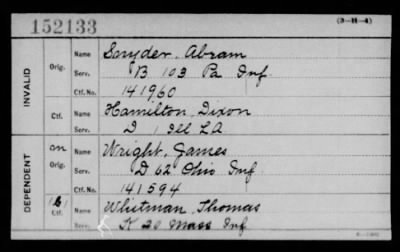 152133
(3-H-4)
INVALID
Orig.
Name Snyder, Abram
Serv. B 103 Pa Inf.
Ctf. No. 141960
Ctf.
Name Hamilton, Dixon
Serv. D 1 Ill L A
DEPENDENT
Orig.
Name Wright, James
Serv. D 62 Ohio Inf
Ctf. No. 141594
Ctf.
Name Whitman, Thomas
Serv. K 20 Mass Inf